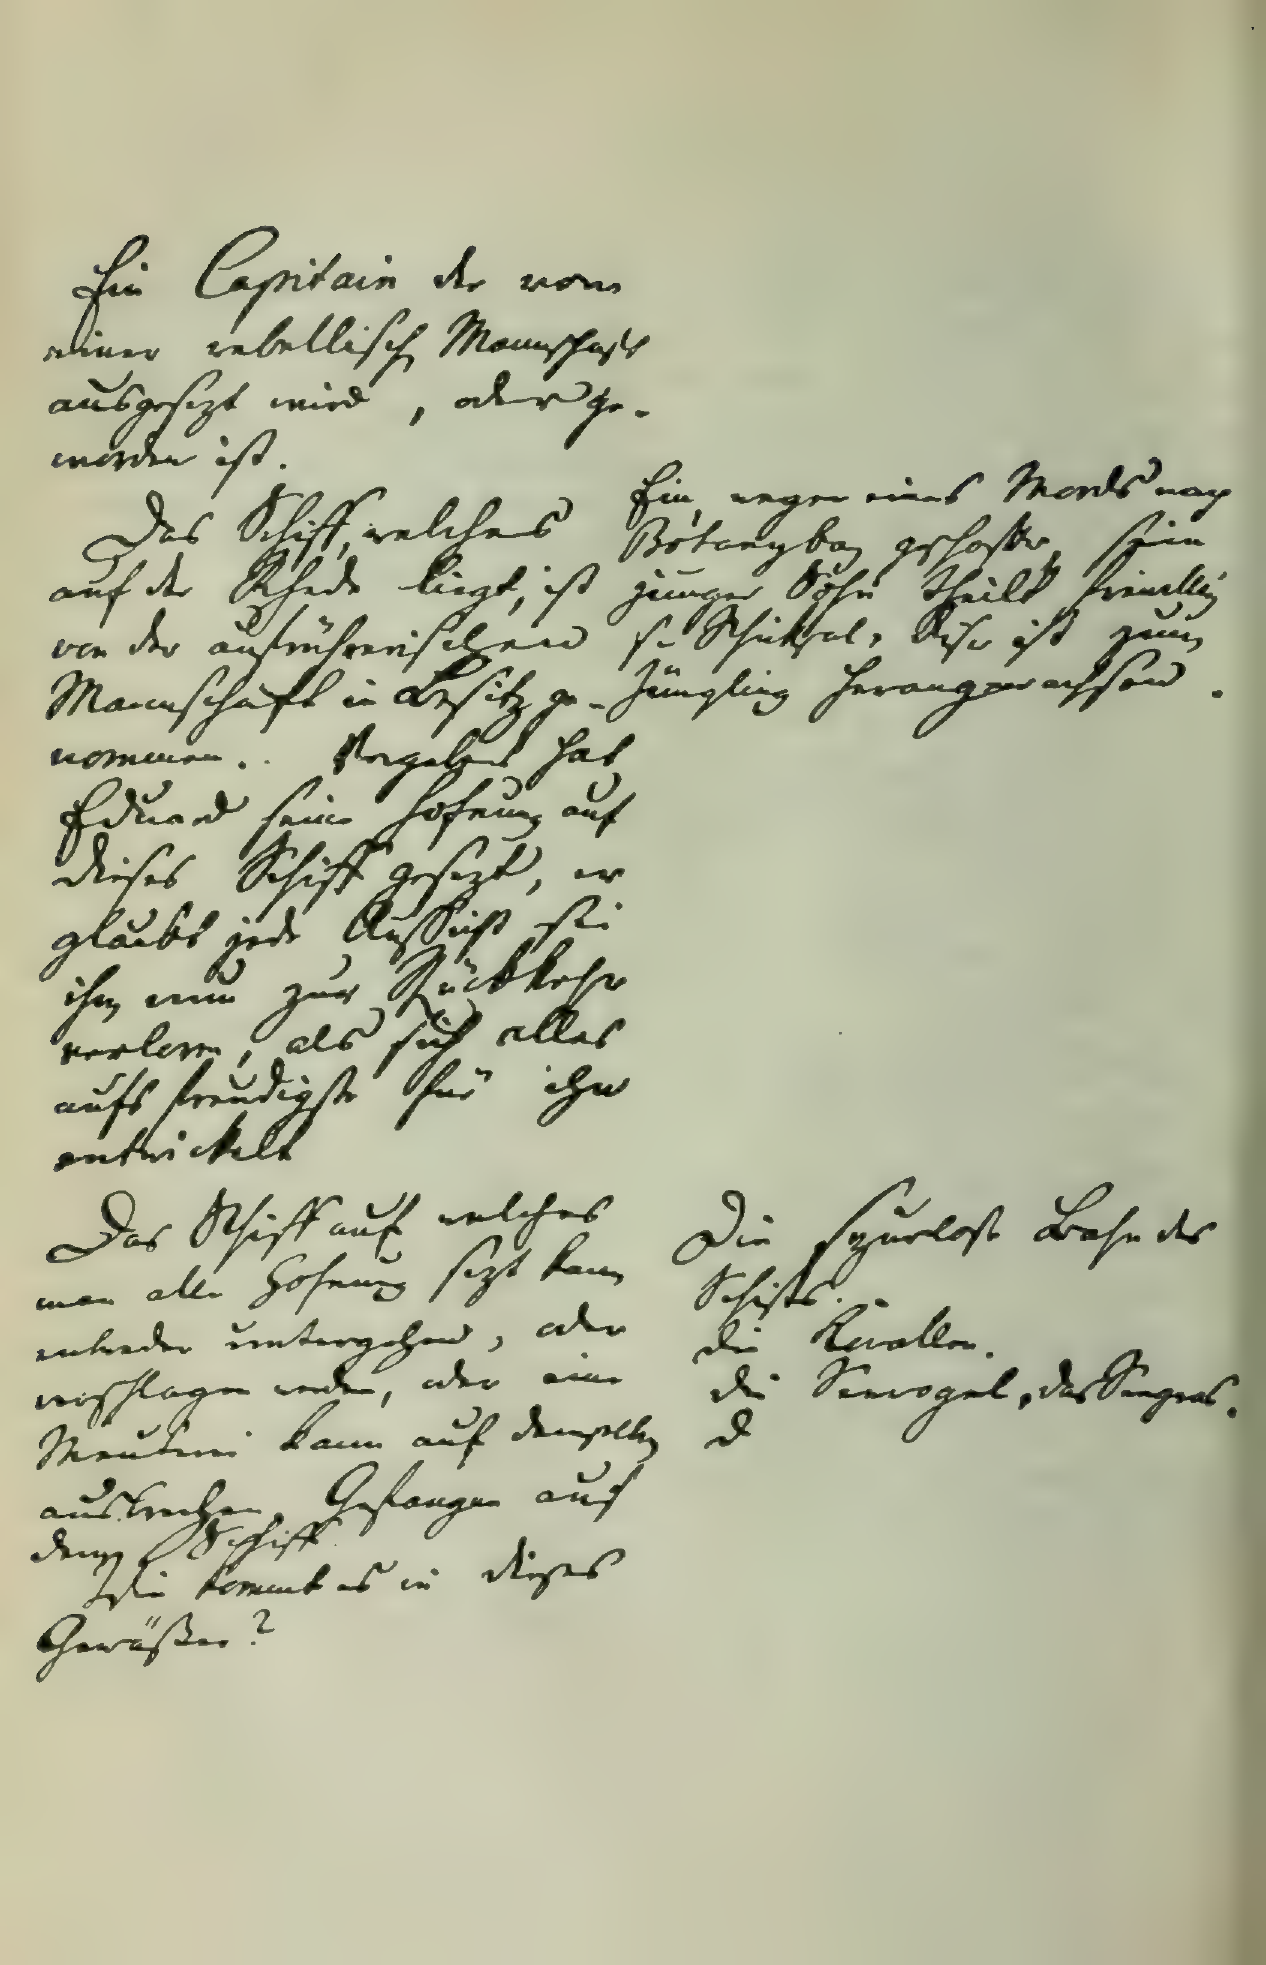 Ein Capitain der von
einer rebellisch Mannschaft
ausgesezt wird, oder ge-
worden ist.
Das Schiff, welches
auf der Rhede liegt, ist
von der aufrührerischen
Mannschaft in Besitz ge-
nommen. Vergebens hat
Eduard seine Hofnung auf
dieses Schiff gesezt, er
glaubt jede Aussicht sei
ihm nun zur Rückkehr
verloren, als sich alles
aufs freudigste für ihn
entwickelt
Das Schiff auf welches
man alle Hofnung sezt kann
entweder untergehen, oder
verschlagen werden, oder eine
Meuterei kann auf demselben
ausbrechen. Gefangen auf
dem Schiff
Wie kommt es in dieses
Gewäßer?
Ein wegen eines Mords nach
Botanybay geschafter, sein
junger Sohn theilt freiwillig
s. Schicksal, dieser ist zum
Jüngling herangewachsen.
Die spurlose Bahn des
Schiffs.
die Korallen.
die Seevogel, das Seegras.
d